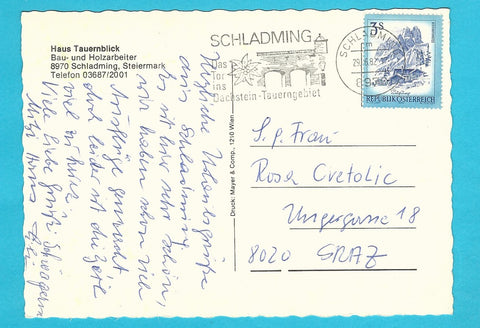 Haus Tauernblick
Bau- und Holzarbeiter
8970 Schladming, Steiermark
Telefon 03687/2001
SCHLADMING
Das
Tor
ins
Dachstein-Tauerngebiet
SCHLADM
29.
897
3 S
REPUBLIK ÖSTERREICH
Druck: Mayer & Comp., 1210 Wien
Herzliche Urlaubsgrüße
aus Schladming.
Es ist hier sehr schön,
wir haben schon viele
Ausflüge gemacht
doch leider ist die Zeit
viel zu kurz.
Viele liebe Grüße
S.g. Frau
Rosa Cvetolic
Ungergasse 18
8020 GRAZ